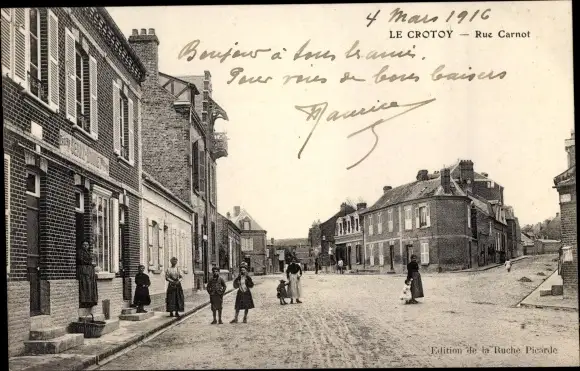 4 Mars 1916
LE CROTOY — Rue Carnot
Bonjour à tous
Pour vous de bons baisers
Maurice
Edition de la Ruche Picarde